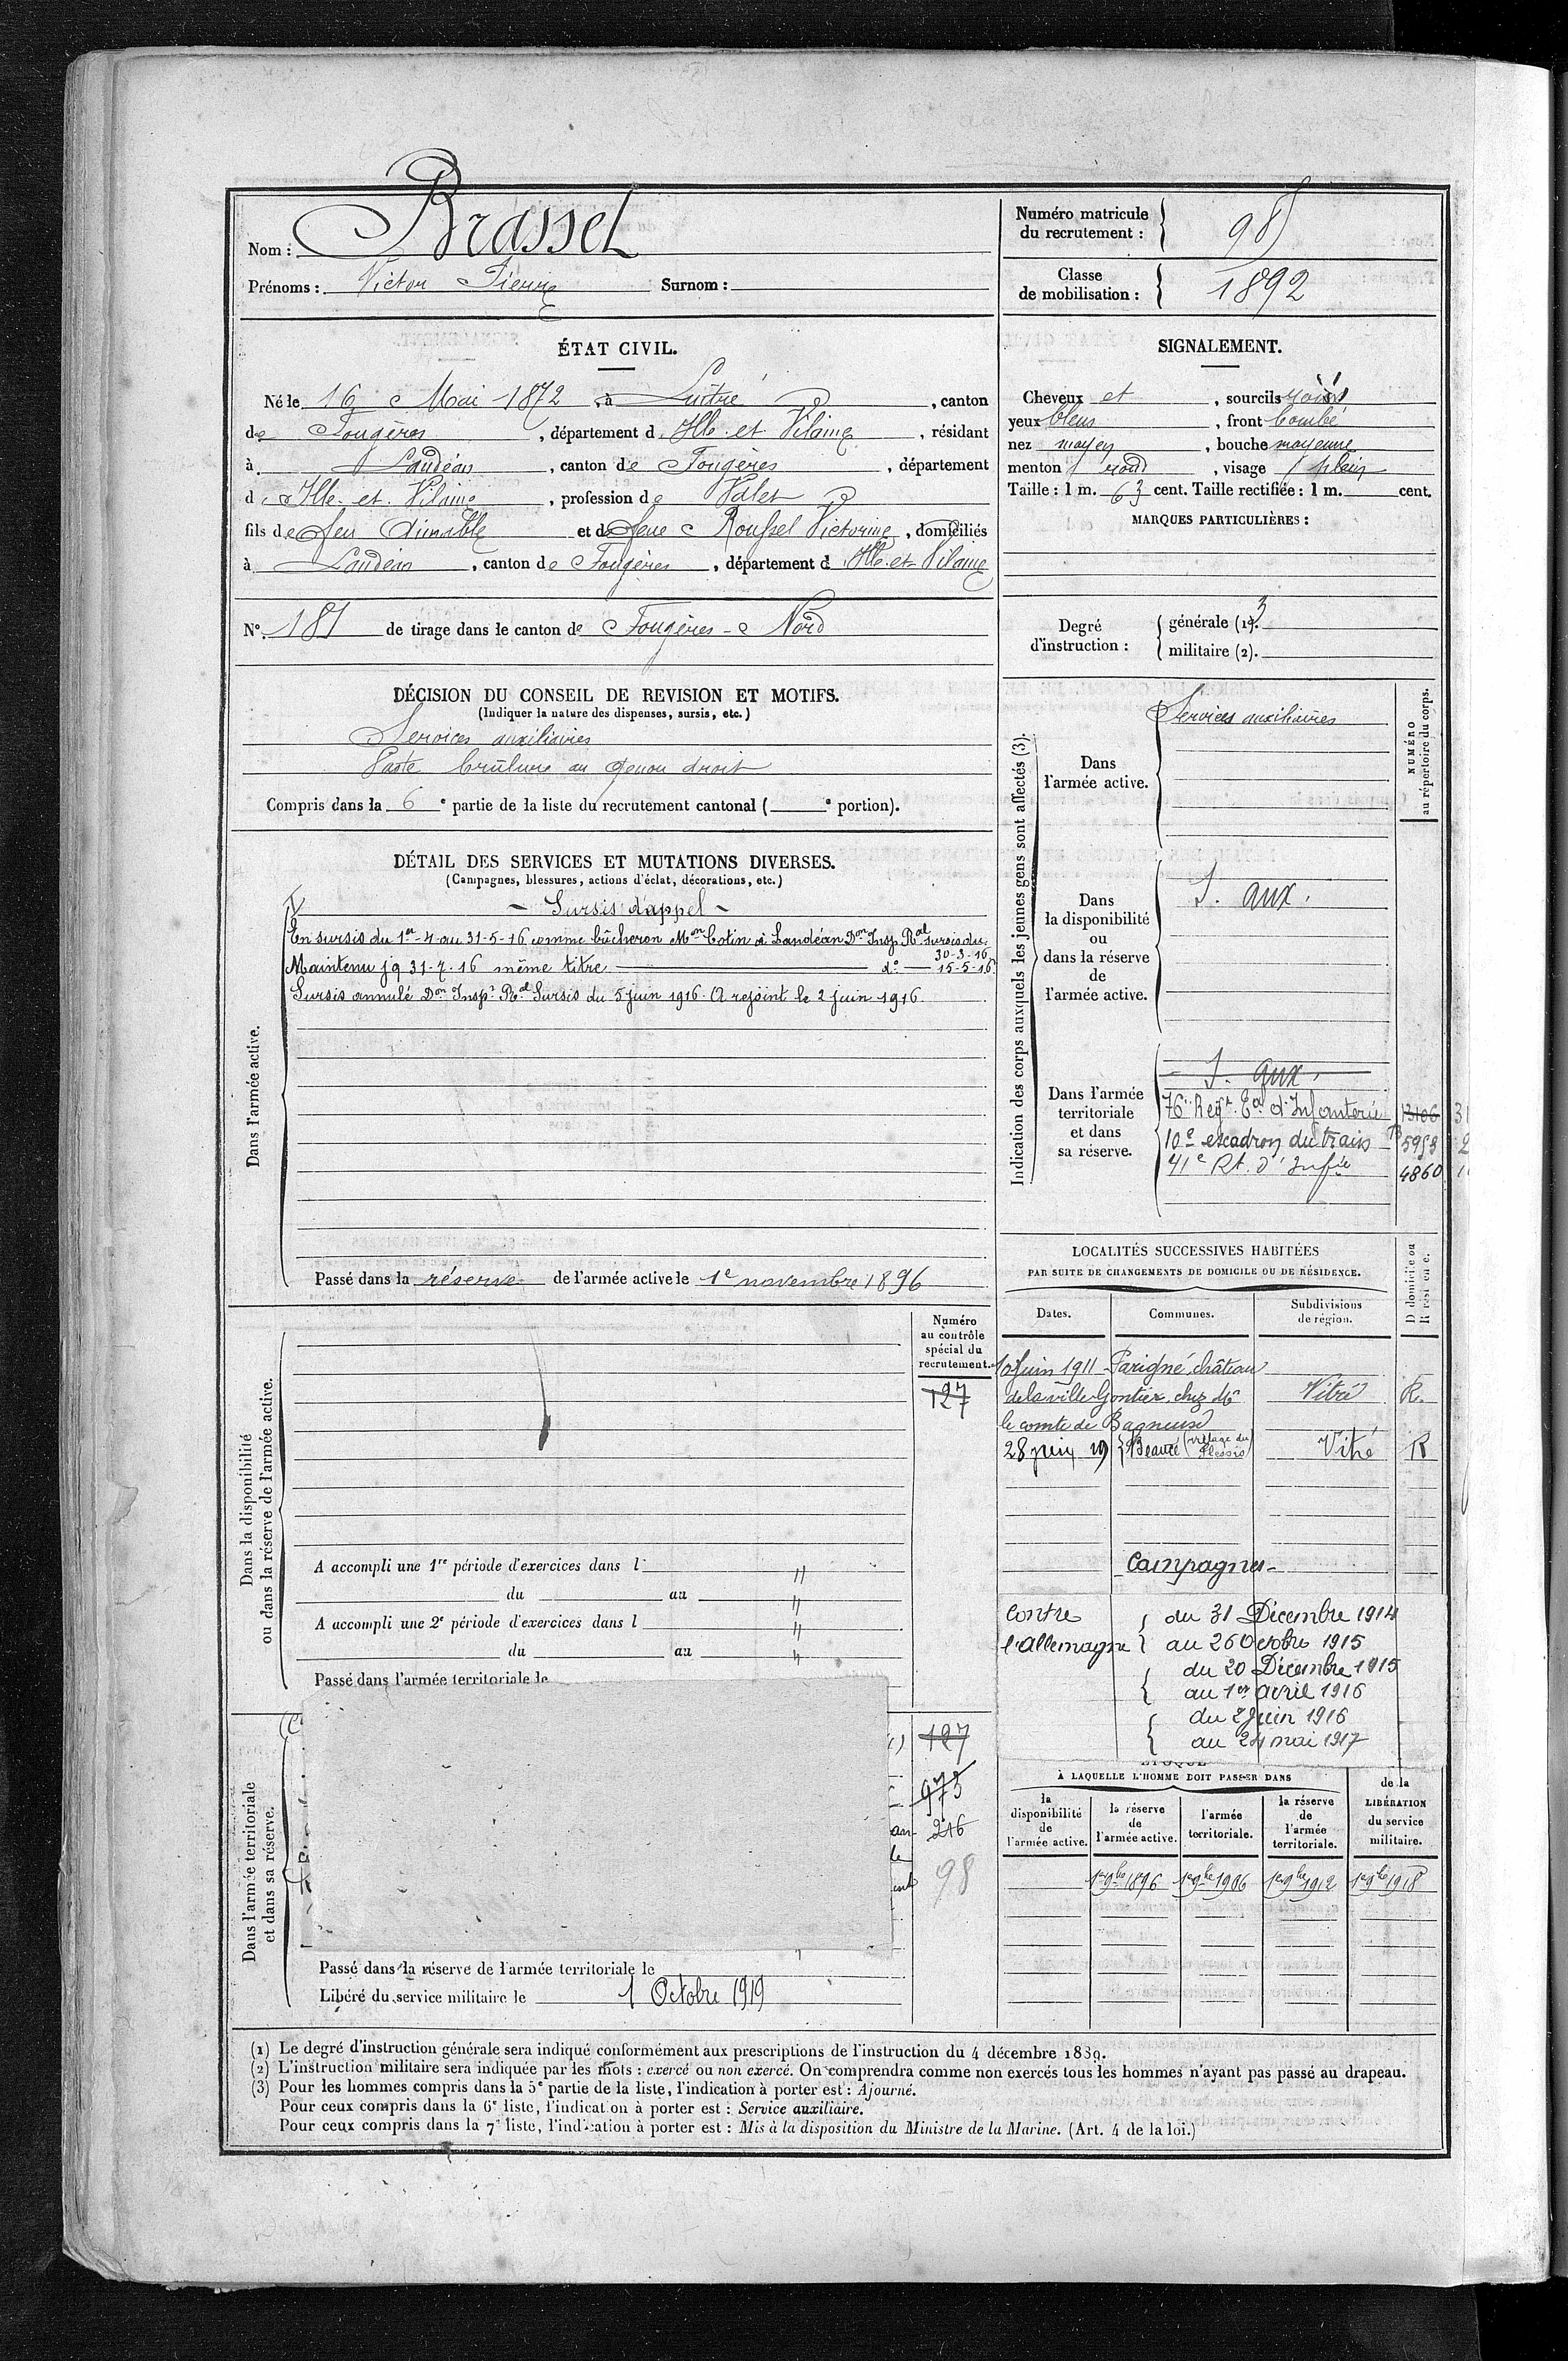 Nom : Brassel
Prénoms : Victor Pierre Surnom :
Numéro matricule
du recrutement : 98
Classe
de mobilisation : 1892
ÉTAT CIVIL.
Né le 16 Mai 1872, à Luitré, canton
de Fougères, département d Ille et Vilaine, résidant
à Landéan, canton de Fougères, département
d Ille et Vilaine, profession de Valet
fils de feu Aimable et de feue Roussel Victorine, domiciliés
à Landéan, canton de Fougères, département d Ille et Vilaine
N° 181 de tirage dans le canton de Fougères-Nord
SIGNALEMENT.
Cheveux et, sourcils
yeux bleus, front bombé
nez moyen, bouche moyenne
menton rond, visage plein
Taille : 1 m. 63 cent. Taille rectifiée : 1 m. cent.
MARQUES PARTICULIÈRES :
Degré
d'instruction :
générale (1). 3
militaire (2).
DÉCISION DU CONSEIL DE REVISION ET MOTIFS.
(Indiquer la nature des dispenses, sursis, etc.)
Services auxiliaires
Vaste brûlure au genou droit
Compris dans la 6e partie de la liste du recrutement cantonal ( e portion).
DÉTAIL DES SERVICES ET MUTATIONS DIVERSES.
(Campagnes, blessures, actions d'éclat, décorations, etc.)
Dans l'armée active.
- Sursis d'appel -
En sursis du 1er-4 au 31-5-16 comme bûcheron Mon Cotin à Landéan Don Insp. Ral sursis du
30-3-16
Maintenu jq 31-7-16 même titre do 15-5-16
Sursis annulé Don Inspr Ral Sursis du 5 juin 1916. A rejoint le 2 juin 1916.
Passé dans la réserve de l'armée active le 1e novembre 1896
Indication des corps auxquels les jeunes gens sont affectés (3).
NUMÉRO
au répertoire du corps.
Dans
l'armée active.
Services auxiliaires
Dans
la disponibilité
ou
dans la réserve
de
l'armée active.
S. aux.
Dans l'armée
territoriale
et dans
sa réserve.
S. aux.
76e Regt Eal d'Infanterie 13106
10e escadron du train 5953
41e Rt. d'Infie 4860
LOCALITÉS SUCCESSIVES HABITÉES
PAR SUITE DE CHANGEMENTS DE DOMICILE OU DE RÉSIDENCE.
Dates. Communes. Subdivisions
de région.
D domicile ou
R résidence.
10 Juin 1911 Parigné, château
de la ville Gontier, chez Mr Vitré R.
le comte de Bagneux
28 juin 19 Beaucé (village du Plessis) Vitré R
Campagnes
Contre
l'Allemagne
du 31 Décembre 1914
au 26 Octobre 1915
du 20 Décembre 1915
au 1er avril 1916
du 2 Juin 1916
au 24 mai 1917
Dans la disponibilité
ou dans la réserve de l'armée active.
Numéro
au contrôle
spécial du
recrutement.
127
A accompli une 1re période d'exercices dans l "
du au "
A accompli une 2e période d'exercices dans l "
du au "
Passé dans l'armée territoriale le
Dans l'armée territoriale
et dans sa réserve.
127
973
216
98
Passé dans la réserve de l'armée territoriale le
Libéré du service militaire le 1 Octobre 1919
ÉPOQUE
À LAQUELLE L'HOMME DOIT PASSER DANS
la
disponibilité
de
l'armée active.
la réserve
de
l'armée active.
l'armée
territoriale.
la réserve
de
l'armée
territoriale.
de la
LIBÉRATION
du service
militaire.
1er 9bre 1896 1er 9bre 1906 1er 9bre 1912 1er 9bre 1918
(1) Le degré d'instruction générale sera indiqué conformément aux prescriptions de l'instruction du 4 décembre 1889.
(2) L'instruction militaire sera indiquée par les mots : exercé ou non exercé. On comprendra comme non exercés tous les hommes n'ayant pas passé au drapeau.
(3) Pour les hommes compris dans la 5e partie de la liste, l'indication à porter est : Ajourné.
Pour ceux compris dans la 6e liste, l'indication à porter est : Service auxiliaire.
Pour ceux compris dans la 7e liste, l'indication à porter est : Mis à la disposition du Ministre de la Marine. (Art. 4 de la loi.)